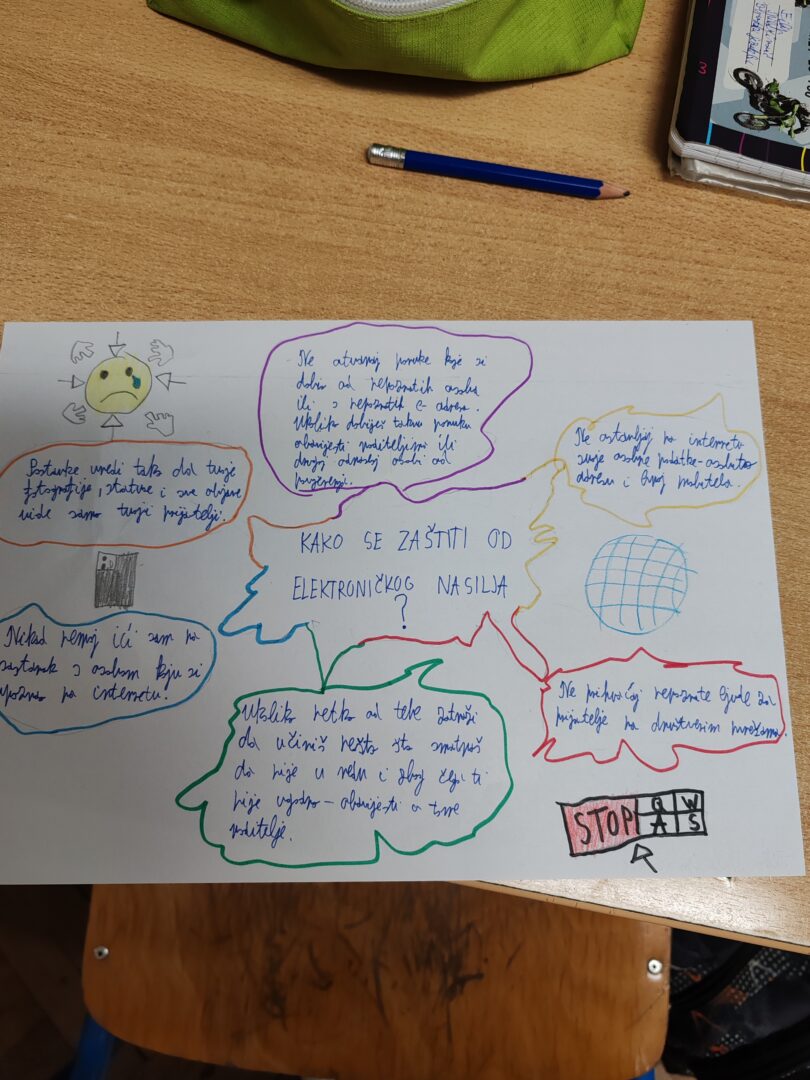 Ne otvaraj poruke koje si
dobio od nepoznatih osoba
ili s nepoznatih e-adresa.
Ukoliko dobiješ takvu poruku
obavijesti roditelji ili
drugoj odrasloj osobi od
povjerenja.
Ne ostavljaj na internetu
svoje osobne podatke-
adresu i broj mobitela.
Postavke uredi tako da tvoje
fotografije, statuse i sve objave
vide samo tvoji prijatelji.
KAKO SE ZAŠTITI OD
ELEKTRONIČKOG NASILJA
?
Nikad nemoj ići sam na
sastanak s osobom koju si
upoznao na internetu.
Ne prihvaćaj nepoznate ljude za
prijatelje na društvenim mrežama.
Ukoliko netko od tebe zatraži
da učiniš nešto što smatraš
da nije u redu i zbog čega ti
nije ugodno - obavijesti o tome
roditelje.
STOP
Q W
A S